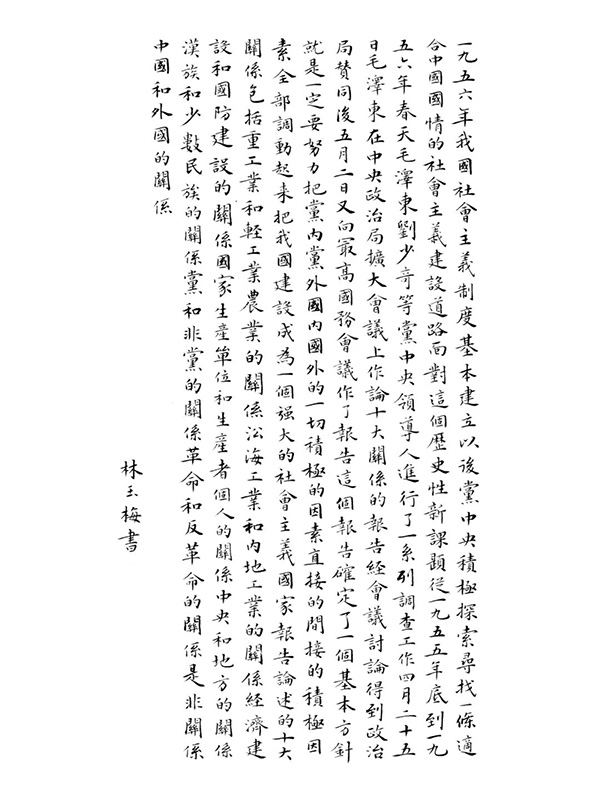 一九五六年我國社會主義制度基本建立以後黨中央積極探索尋找一條適
合中國國情的社會主義建設道路面對這個歷史性新課題從一九五五年底到一九
五六年春天毛澤東劉少奇等黨中央領導人進行了一系列調查工作四月二十五
日毛澤東在中央政治局擴大會議上作論十大關係的報告經會議討論得到政治
局贊同後五月二日又向最高國務會議作了報告這個報告確定了一個基本方針
就是一定要努力把黨內黨外國內國外的一切積極的因素直接的間接的積極因
素全部調動起来把我國建設成為一個强大的社會主義國家報告論述的十大
關係包括重工業和輕工業農業的關係沿海工業和內地工業的關係經濟建
設和國防建設的關係國家生產單位和生產者個人的關係中央和地方的關係
漢族和少數民族的關係黨和非黨的關係革命和反革命的關係是非關係
中國和外國的關係
林玉梅書